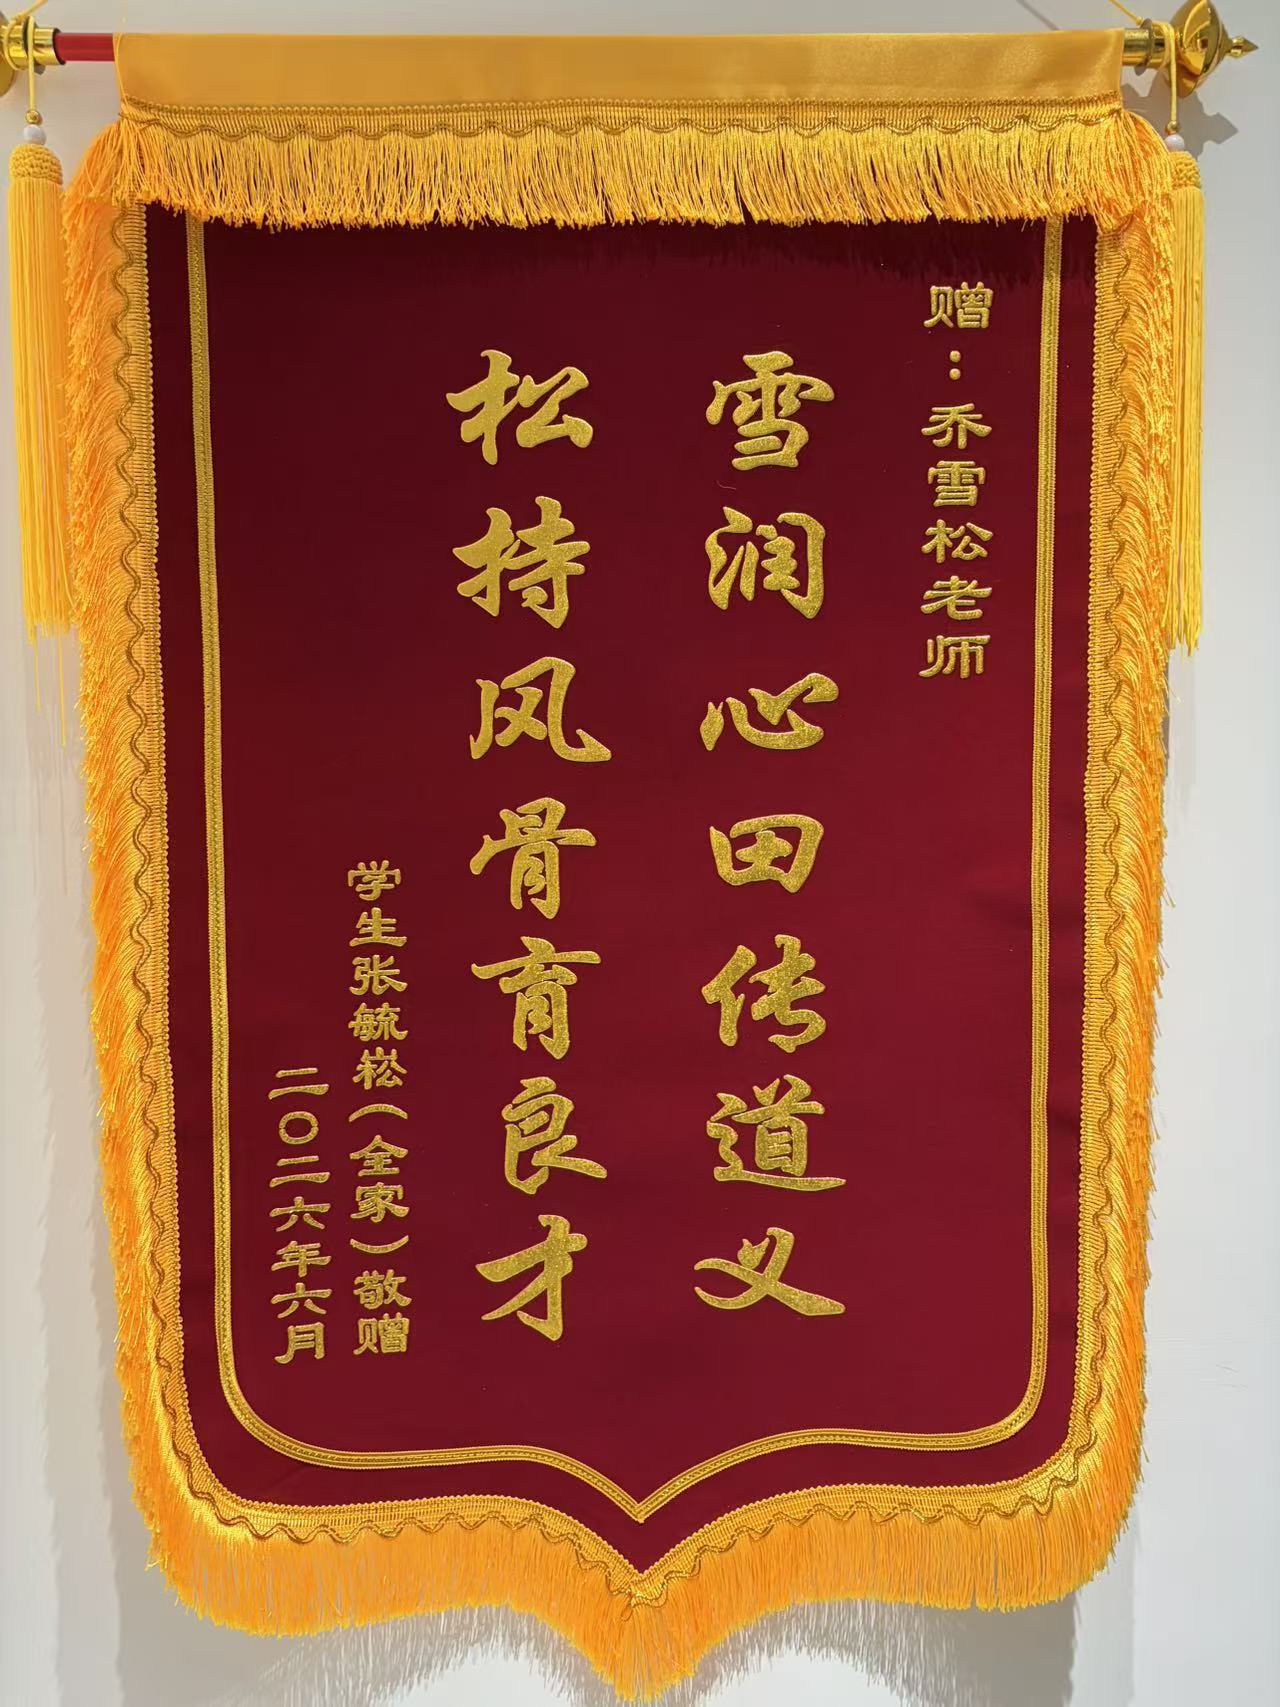 赠：乔雪松老师
雪润心田传道义
松持风骨育良才
学生张毓崧（全家）敬赠
二〇二六年六月